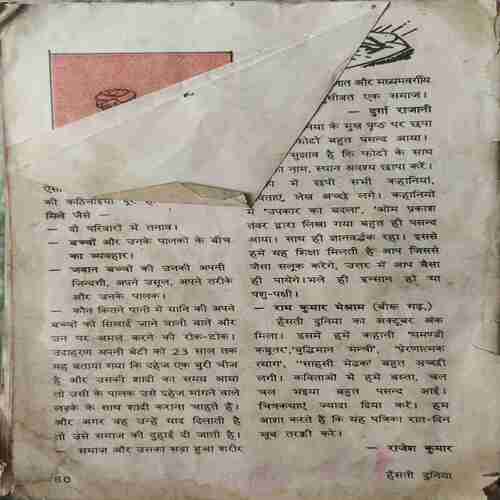 की कठिनाइयां
मिले जैसे —
— दो परिवारों में तनाव।
— बच्चों और उनके पालकों के बीच
का व्यवहार।
— जवान बच्चों की उनकी अपनी
जिन्दगी, अपने उसूल, अपने तरीके
और उनके पालक।
— कौन कितने पानी में यानि की अपने
बच्चों को सिखाई जाने वाली बातें और
उन पर अमल करने की रोक-टोक।
उदाहरण अपनी बेटी को 23 साल तक
यह बताया गया कि दहेज एक बुरी चीज
है और उसकी शादी का समय आया
तो उसी के पालक उसे दहेज मांगने वाले
लड़के के साथ शादी कराना चाहते हैं।
और अगर वह उन्हें याद दिलाती है
तो उसे समाज की दुहाई दी जाती है।
— समाज और उसका सड़ा हुआ शरीर
60
और मध्यमवर्गीय
एक समाज।
— दुर्गा राजानी
के मुख पृष्ठ पर छपा
फोटो बहुत पसन्द आया।
सुझाव है कि फोटो के साथ
का नाम, स्थान अवश्य छापा करें।
में छपी सभी कहानियां,
लेख अच्छे लगे। कहानियों
में 'उपकार का बदला', 'ओम प्रकाश
तंवर द्वारा लिखा गया बहुत ही पसन्द
आया। साथ ही ज्ञानवर्द्धक रहा। इससे
हमें यह शिक्षा मिलती है आप जिससे
जैसा सलूक करेंगे, उत्तर में आप वैसा
ही पायेंगे।भले ही इन्सान हो या
पशु-पक्षी।
— राम कुमार मेश्राम (बीरू गढ़.)
हँसती दुनिया का अक्टूबर अंक
मिला। इसमें हमें कहानी 'घमण्डी
कबूतर','बुद्धिमान मन्त्री', 'प्रेरणात्मक
त्याग', 'साहसी मेंढक' बहुत अच्छी
लगी। कविताओं में हमें बस्ता, चल
चल भंइया बहुत पसन्द आई।
चित्रकथाएं ज्यादा दिया करें। हम
आशा करते हैं कि यह पत्रिका रात-दिन
खूब तरक्की करे।
— राजेश कुमार
हँसती दुनिया